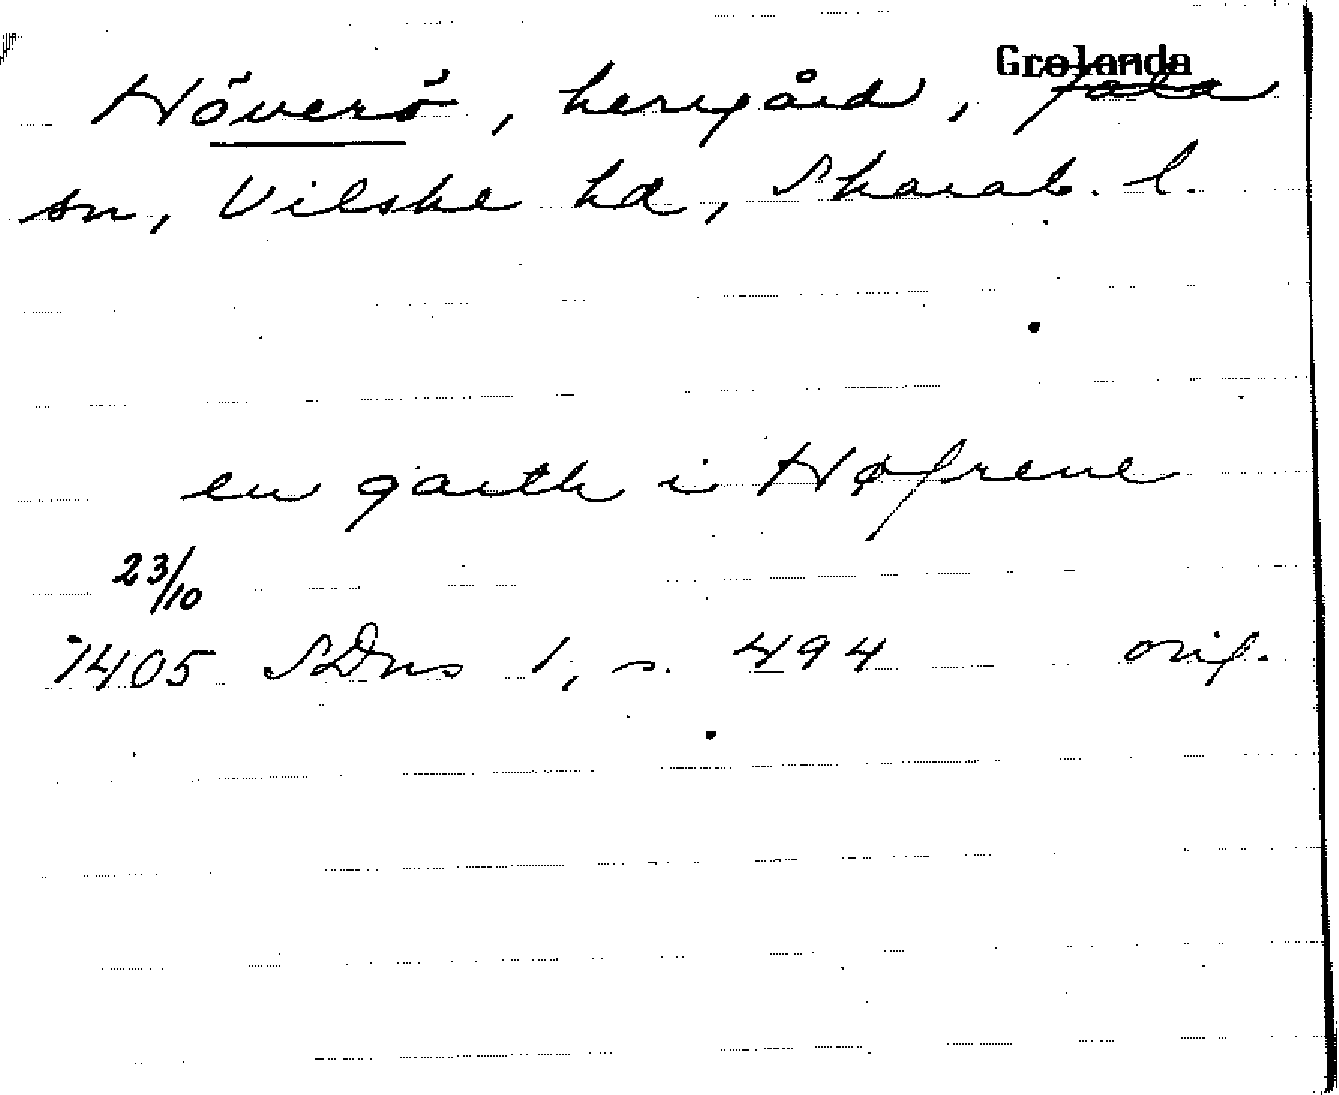 Höverö, herrgård, Grolanda Jäla
sn, Vilske hd, Skarab. l.
en garth i Høfrene
23/10
1405 SDns 1, s. 494 orig.